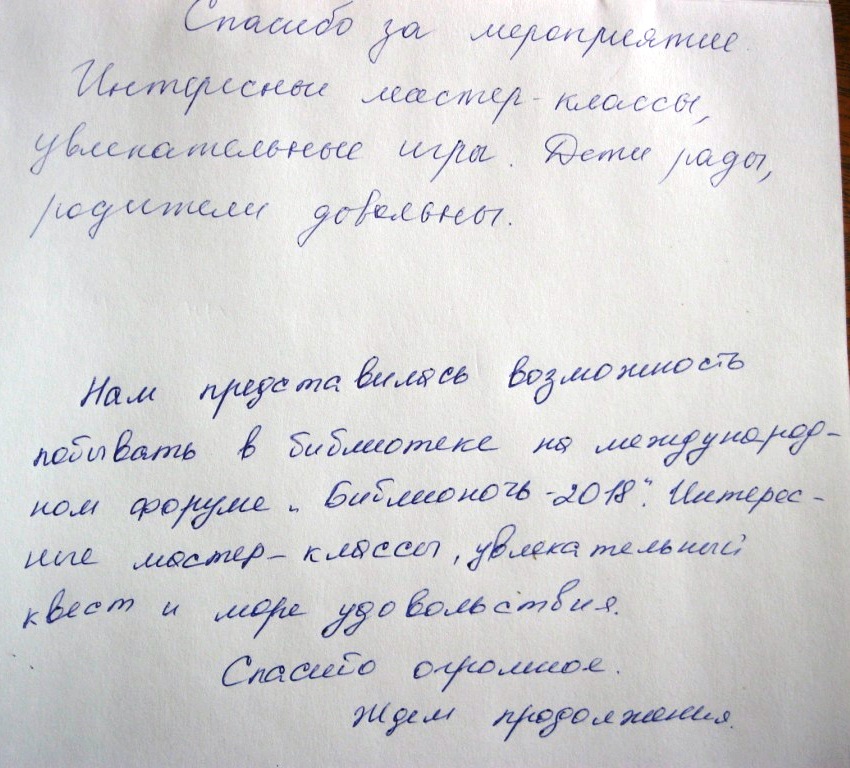 Спасибо за мероприятие.
Интересные мастер-классы,
увлекательные игры. Дети рады,
родители довольны.
Нам представилась возможность
побывать в библиотеке на международ-
ном форуме „Библионочь-2018". Интерес-
ные мастер-классы, увлекательный
квест и море удовольствия.
Спасибо огромное.
Ждем продолжения.